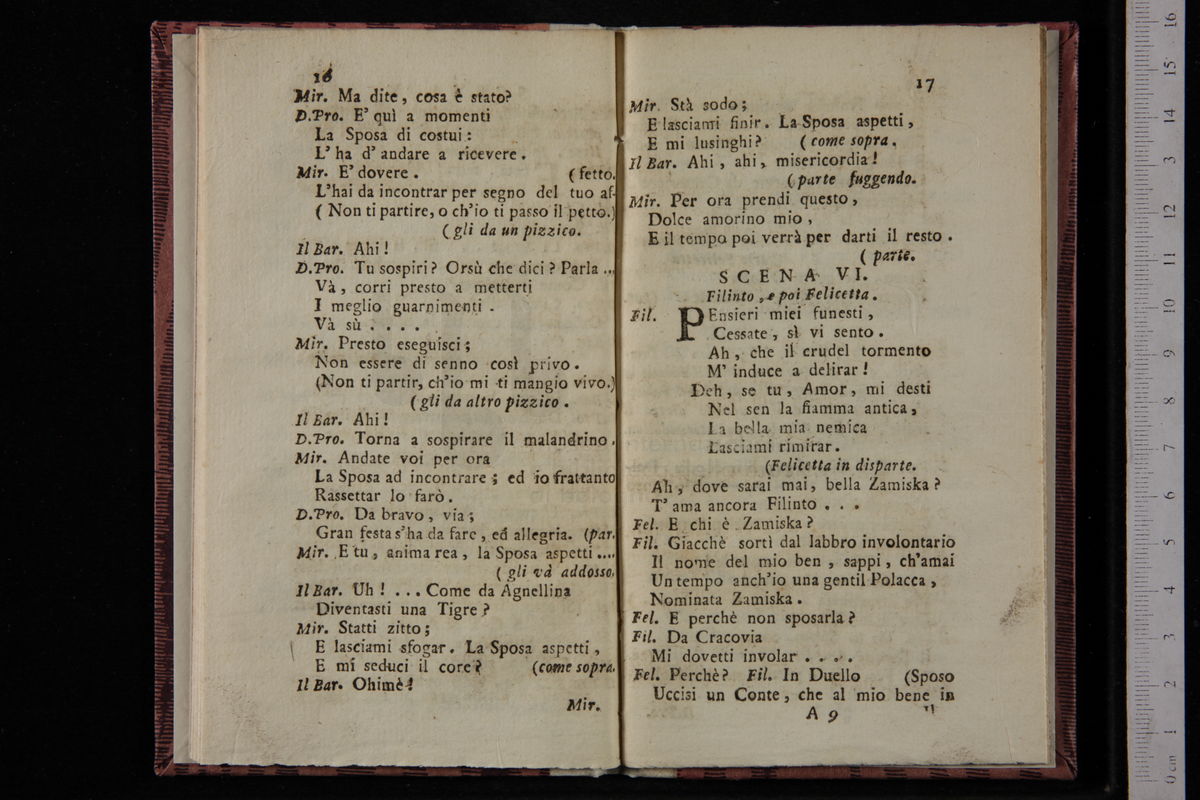 16
Mir. Ma dite, cosa è stato?
D.Pro. E' quì a momenti
La Sposa di costui:
L' ha d' andare a ricevere.
Mir. E' dovere. (fetto.
L'hai da incontrar per segno del tuo af-
(Non ti partire, o ch'io ti passo il petto.)
(gli da un pizzico.
Il Bar. Ahi!
D.Pro. Tu sospiri? Orsù che dici? Parla ...
Và, corri presto a metterti
I meglio guarnimenti.
Và sù ....
Mir. Presto eseguisci;
Non essere di senno così privo.
(Non ti partir, ch'io mi ti mangio vivo.)
(gli da altro pizzico.
Il Bar. Ahi!
D.Pro. Torna a sospirare il malandrino.
Mir. Andate voi per ora
La Sposa ad incontrare; ed io frattanto
Rassettar lo farò.
D.Pro. Da bravo, via;
Gran festa s'ha da fare, ed allegria. (par.
Mir. E tu, anima rea, la Sposa aspetti ....
(gli và addosso.
Il Bar. Uh! ... Come da Agnellina
Diventasti una Tigre?
Mir. Statti zitto;
E lasciami sfogar. La Sposa aspetti,
E mi seduci il core? (come sopra.
Il Bar. Ohimè!
Mir.
17
Mir. Stà sodo;
E lasciami finir. La Sposa aspetti,
E mi lusinghi? (come sopra.
Il Bar. Ahi, ahi, misericordia!
(parte fuggendo.
Mir. Per ora prendi questo,
Dolce amorino mio,
E il tempo poi verrà per darti il resto.
(parte.
SCENA VI.
Filinto, e poi Felicetta.
Fil. PEnsieri miei funesti,
Cessate, sì vi sento.
Ah, che il crudel tormento
M' induce a delirar!
Deh, se tu, Amor, mi desti
Nel sen la fiamma antica,
La bella mia nemica
Lasciami rimirar.
(Felicetta in disparte.
Ah, dove sarai mai, bella Zamiska?
T' ama ancora Filinto ...
Fel. E chi è Zamiska?
Fil. Giacchè sortì dal labbro involontario
Il nome del mio ben, sappi, ch'amai
Un tempo anch'io una gentil Polacca,
Nominata Zamiska.
Fel. E perchè non sposarla?
Fil. Da Cracovia
Mi dovetti involar ....
Fel. Perchè? Fil. In Duello (Sposo
Uccisi un Conte, che al mio bene in
A 9